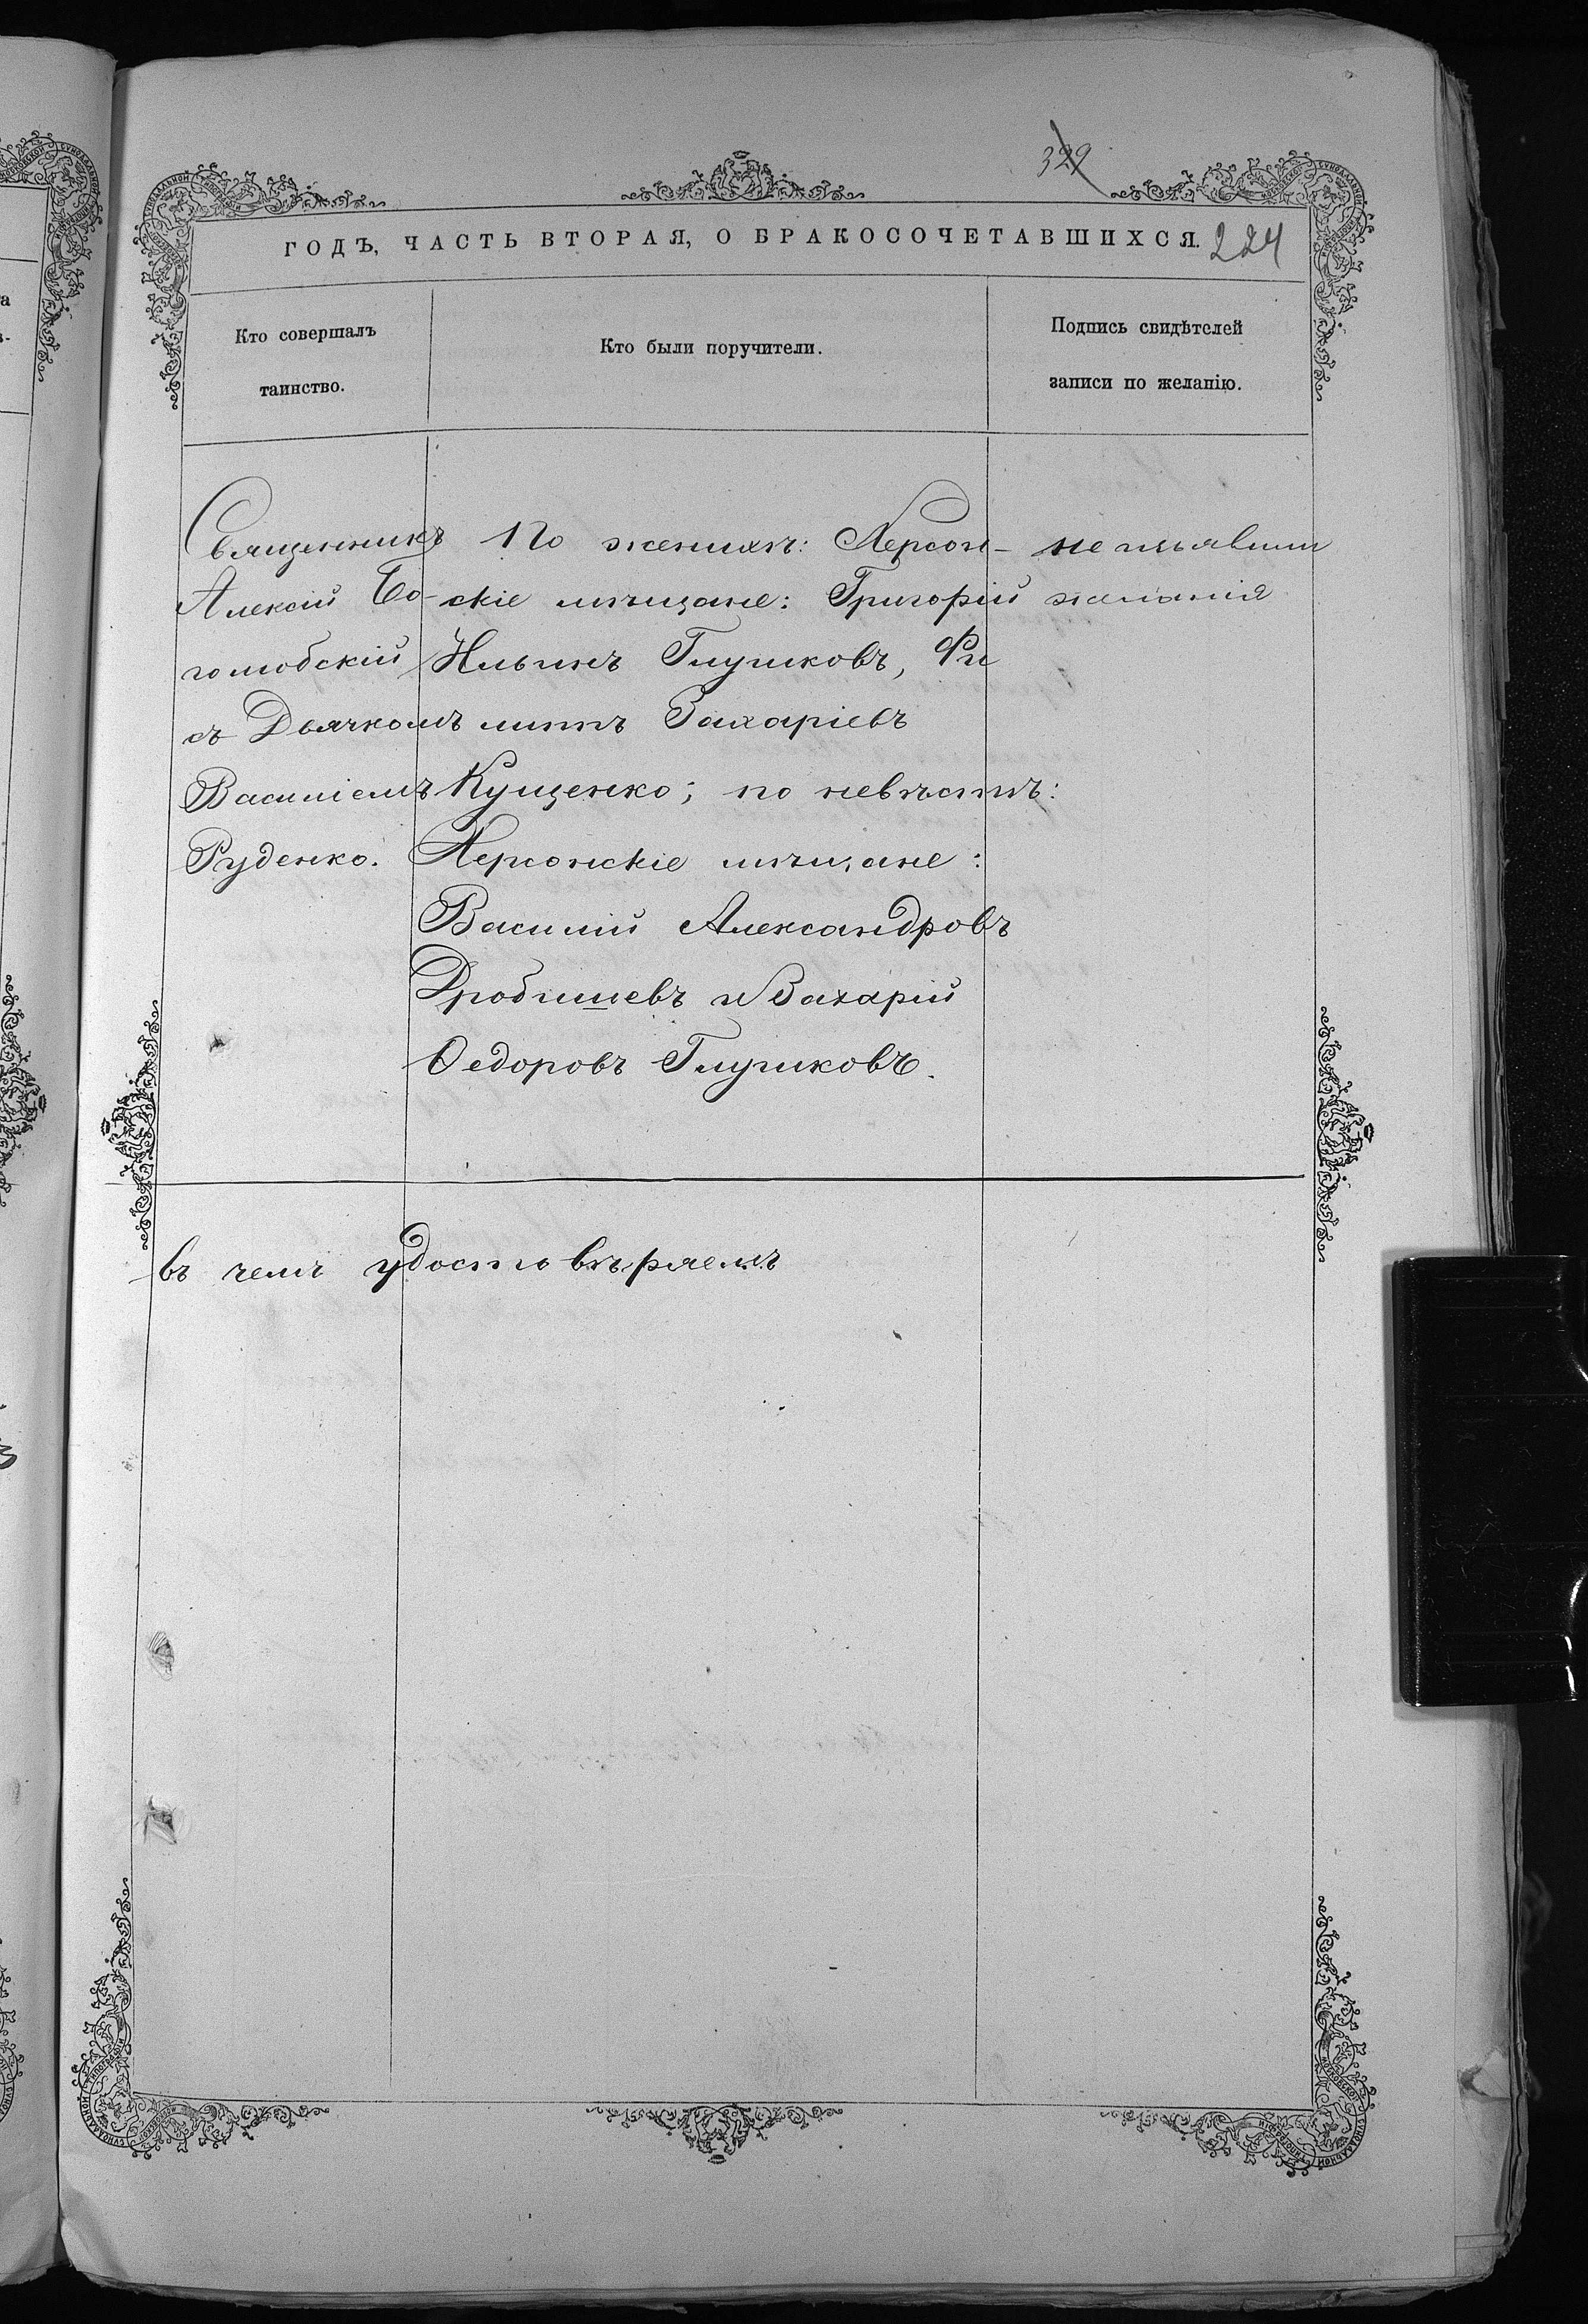 329
ГОДЪ, ЧАСТЬ ВТОРАЯ, О БРАКОСОЧЕТАВШИХСЯ. 224
Кто совершалъ
таинство.
Кто были поручители.
Подпись свидѣтелей
записи по желанію.
Священникъ
Алексій Бо-
голюбскій
съ Дьячкомъ
Василіемъ
Руденко.
По женихѣ: Херсон-
скіе мѣщане: Григорій
Ильинъ Глушковъ, Фи
липпъ Захаріевъ
Кущенко; по невѣстѣ:
Херсонскіе мѣщане:
Василій Александровъ
Дробишевъ и Захарій
Ѳедоровъ Глушковъ.
не изъявили
желанія
въ чемъ удостовѣряемъ